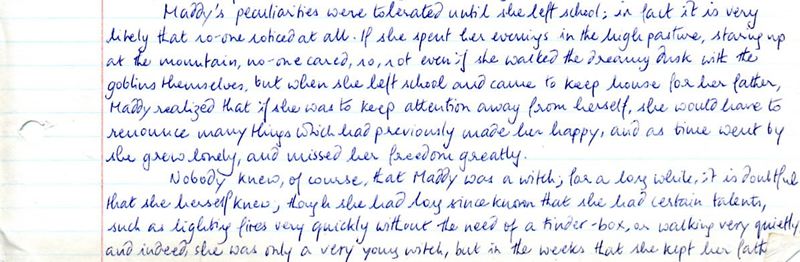 Maddy's peculiarities were tolerated until she left school; in fact it is very
likely that no-one noticed at all. If she spent her evenings in the high pasture, staring up
at the mountain, no-one cared, no, not even if she walked the dreamy dusk with the
goblins themselves, but when she left school and came to keep house for her father,
Maddy realized that if she was to keep attention away from herself, she would have to
renounce many things which had previously made her happy, and as time went by
she grew lonely, and missed her freedom greatly.
Nobody knew, of course, that Maddy was a witch; for a long while, it is doubtful
that she herself knew; though she had long since known that she had certain talents,
such as lighting fires very quickly without the need of a tinder-box, or walking very quietly
and indeed, she was only a very young witch, but in the weeks that she kept her fath